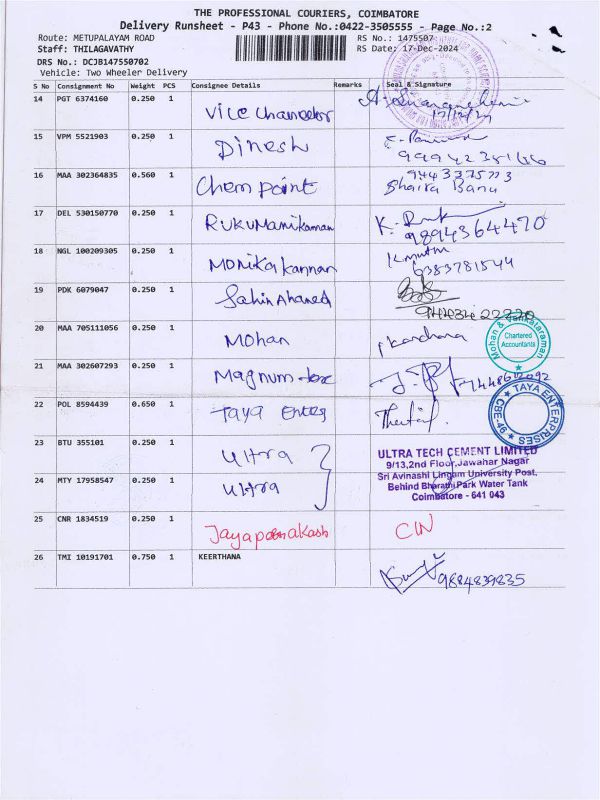 THE PROFESSIONAL COURIERS, COIMBATORE
Delivery Runsheet - P43 - Phone No.:0422-3505555 - Page No.:2
Route: METUPALAYAM ROAD
RS No.: 1475507
Staff: THILAGAVATHY
RS Date: 17-Dec-2024
DRS No.: DCJB147550702
Vehicle: Two Wheeler Delivery
S No Consignment No Weight PCS Consignee Details Remarks Seal & Signature
14 PGT 6374160 0.250 1 Vice Chancellor
17/12/24
15 VPM 5521903 0.250 1 Dinesh
16 MAA 302364835 0.560 1 Chem point
Shaira Banu
17 DEL 530150770 0.250 1 RUKUMani kannan K.
9894364470
18 NGL 100209305 0.250 1 MONika kannan K muthu
6383781544
19 PDK 6079047 0.250 1 Sahin Ahamed
20 MAA 705111056 0.250 1 Mohan
Mohan & Venkataraman
Chartered
Accountants
21 MAA 302607293 0.250 1 Magnum
22 POL 8594439 0.650 1 Taya Enter
TAYA ENTERPRISES
CBE-46
23 BTU 355101 0.250 1 Ultra
24 MTY 17958547 0.250 1 Ultra
ULTRA TECH CEMENT LIMITED
9/13,2nd Floor,Jawahar Nagar
Sri Avinashi Lingam University Post,
Behind Bharathi Park Water Tank
Coimbatore - 641 043
25 CNR 1834519 0.250 1 CIN
26 TMI 10191701 0.750 1 KEERTHANA
9884839835